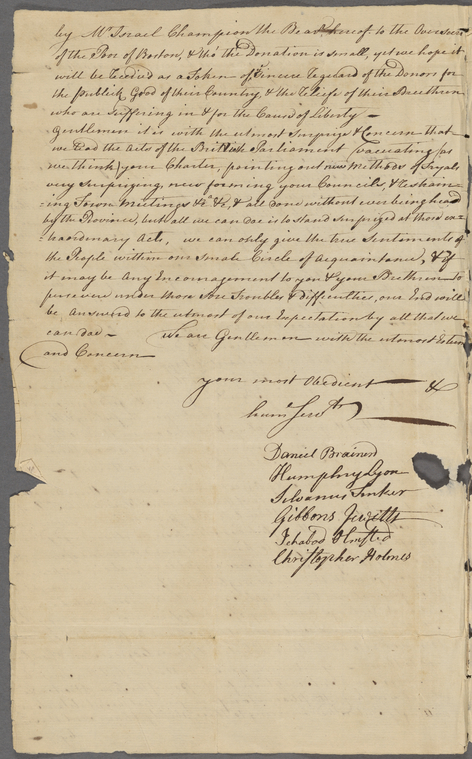 by Mr Israel Champion the Bearer hereof to the Overseers
of the Poor of Boston, & tho' the Donation is small, yet we hope it
will be Received as a Token of Sincere Regard of the Donors for
the Publick Good of their Country, & the Releife of their Breethren
who are suffering in & for the Cause of Liberty —
Gentlemen it is with the utmost Surprize & Concern that
we Read the Acts of the British Parliament (Vacuating as
we think) your Charter, pointing out new Methods of Tryals
very Surprizing, new forming your Councils, & Restrain-
-ing Town Meetings &c &c, & all done without ever being heard
by the Province, but all we can doe is to stand Surprized at those ex-
-traordinary Acts, we can only give the true Sentiments of
the People within our Smale Circle of Acquaintance, & if
it may be Any Encouragement to you & your Brethren to
persevere under those Sore Troubles & Difficulties, our End will
be Answerd to the utmost of our Expectation by all that we
can doe — We are Gentlemen with the utmost Esteem
and Concern —
your most Obedient — &
hum Servts
Daniel Brainerd
Humphry Lyon
Silvanus Tinker
Gibbons Jewitt
Ichabod Olmsted
Christopher Holmes